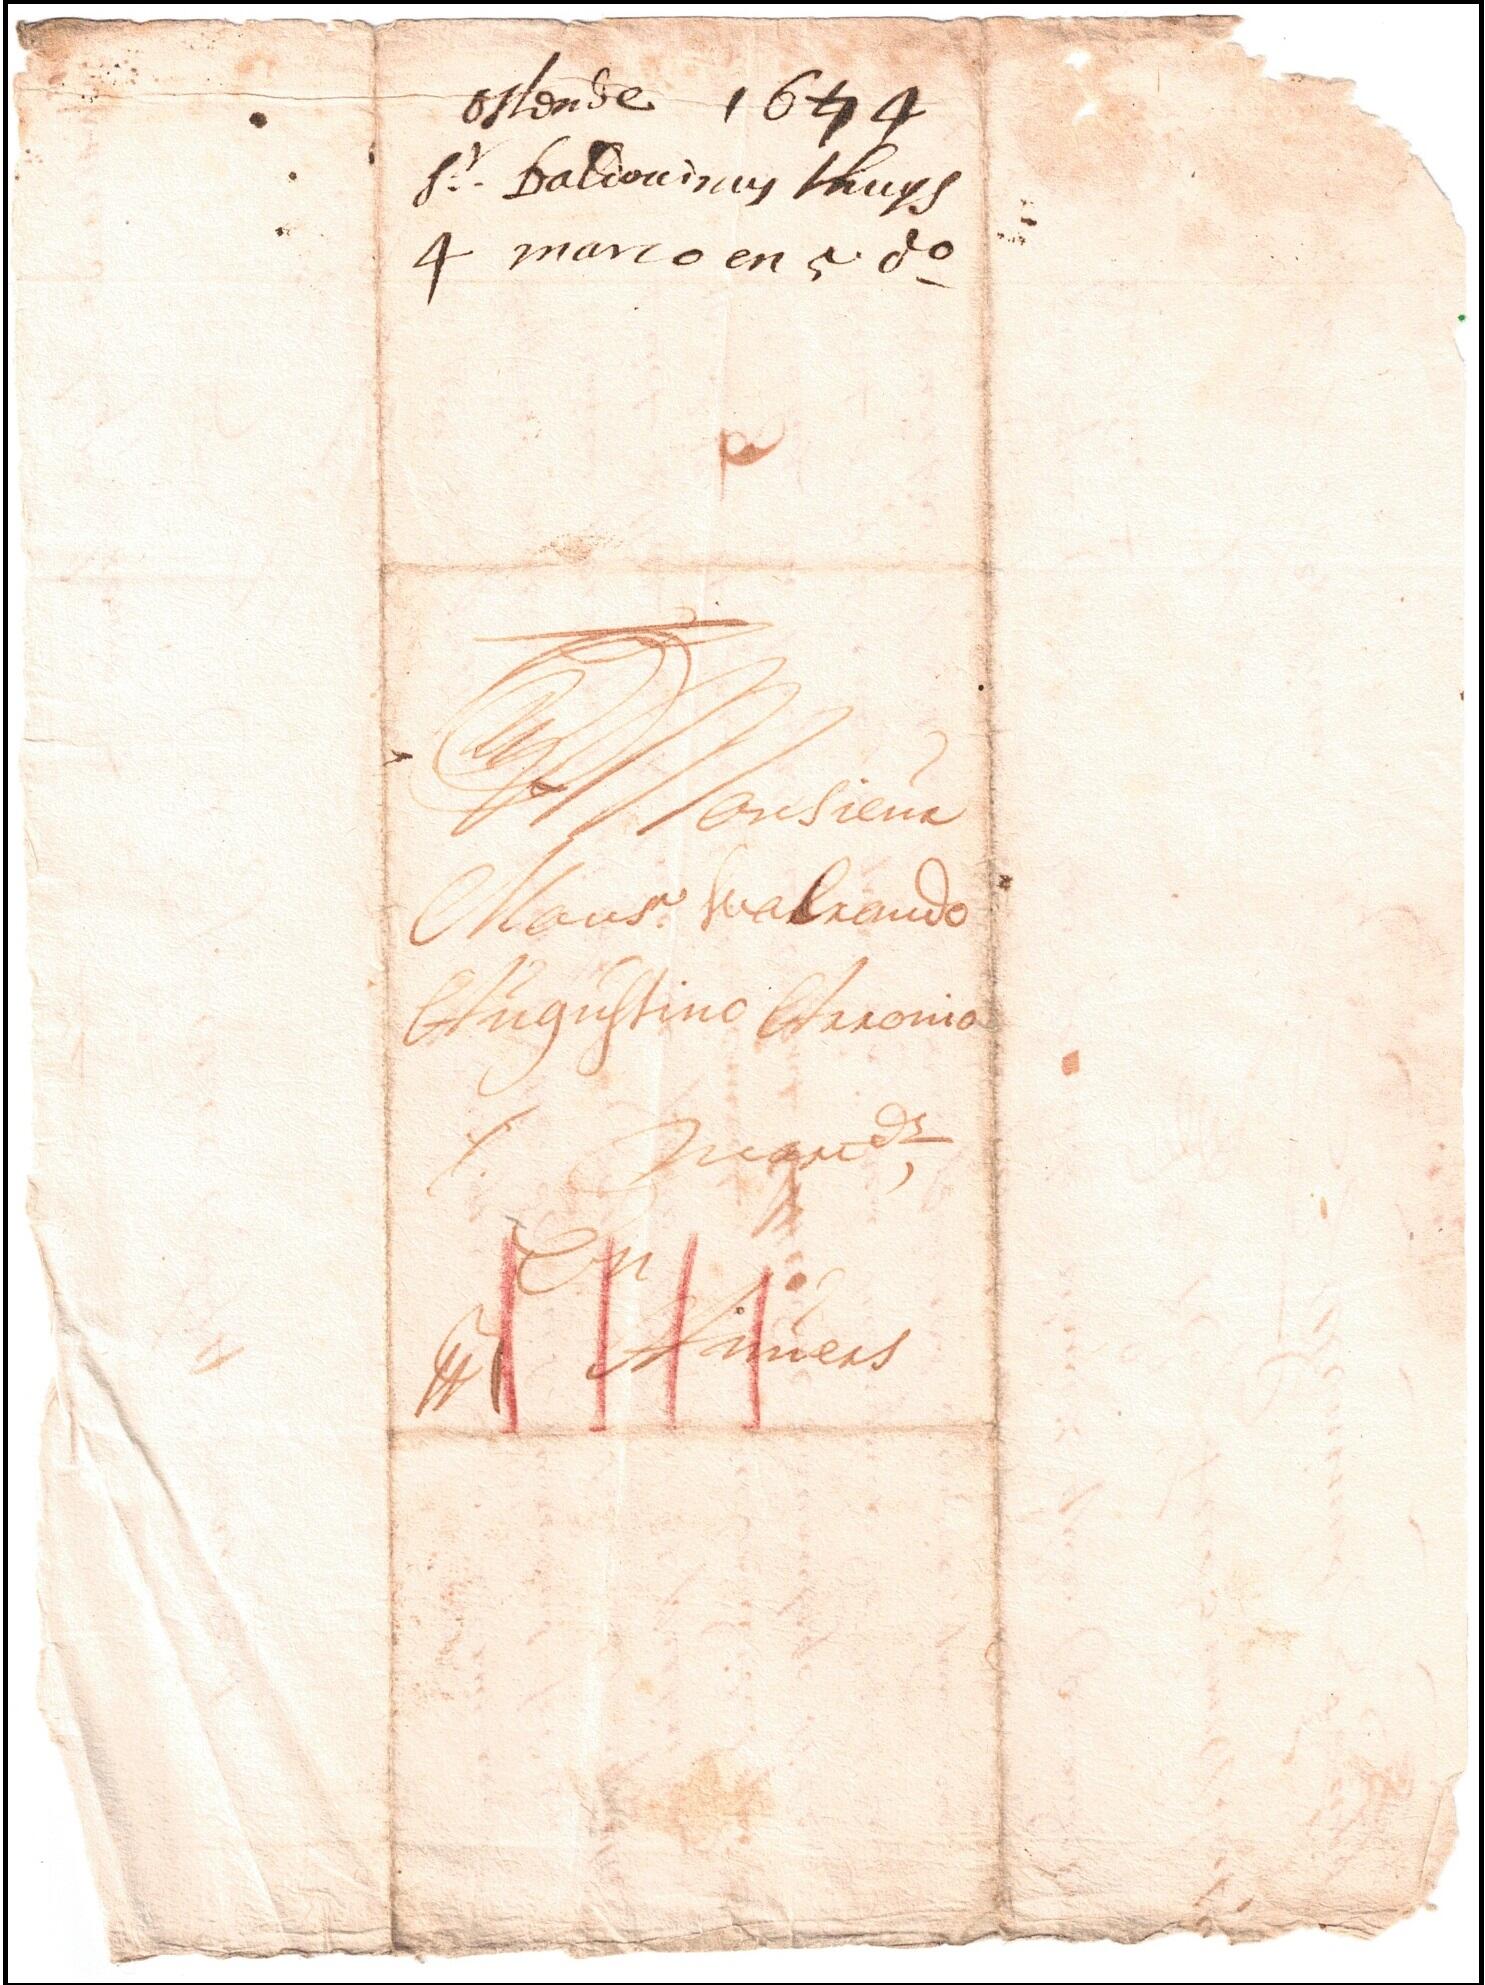 ostende 1644
Sr. Baldouinus thuys
4 marco en 5 do
Monsieur
Monsr. Walrando
Augustino Arronio
marcds,
En
Anuers